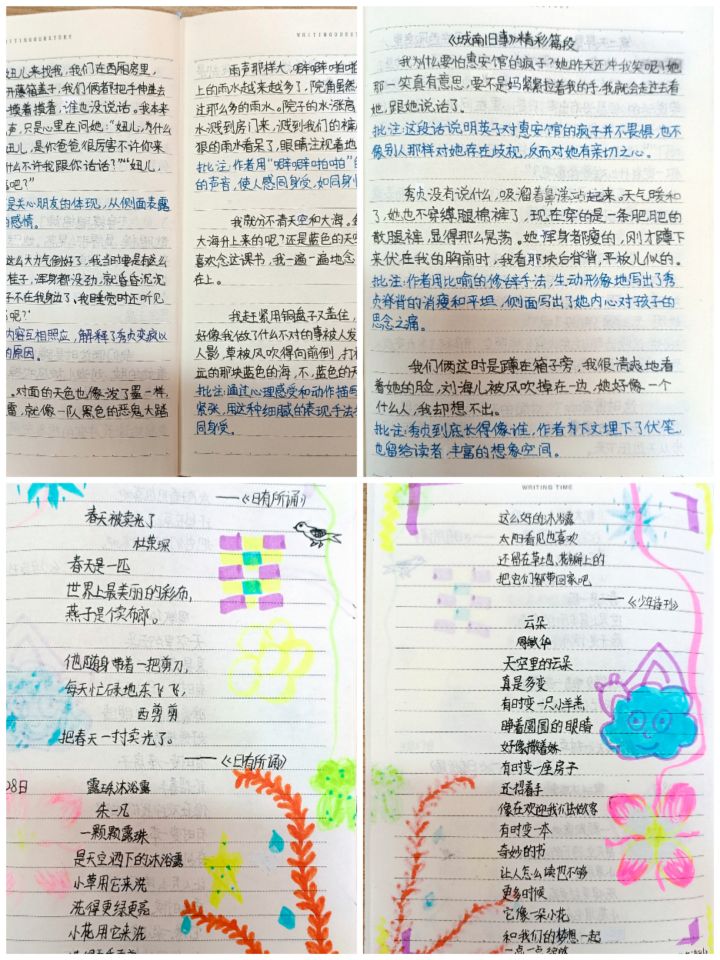 妞儿来找我,我们在西厢房里,
开藤箱盖子,我们俩都把手伸进去
摸着摸着,谁也没说话。我本来
声,只是心里在问她:“妞儿,为什么
妞儿,是你爸爸很厉害不许你来
什么不许我跟你话话?”“妞儿,
吧?”
是关心朋友的体现,从侧面表露
感情。
这么大力气倒好了,我当时要是有这么
桂子,浑身都没劲,就昏昏沉沉
子不在我身边了,我睡觉时还听见
吧?’
内容互相照应,解释了秀贞变疯以
的原因。
。对面的天色也像泼了墨一样,
雷,就像一队黑色的恶鬼大踏
雨声那样大,噼噼啪啪
上的雨水越来越多了,院角虽然
过那么多的雨水。院子的水涨高
水溅到房门来,溅到我们的裤
狠的雨水看呆了,眼睛注视着地
批注:作者用“噼噼啪啪”
的声音,使人感同身受,如同身
我就分不清天空和大海。
大海升上来的呢?还是蓝色的天
喜欢念这课书,我一遍一遍地念
在上。
我赶紧用铜盘子又盖住,
好像我做了什么不对的事被人发
人影,草被风吹得向前倒,打
远的那块蓝色的海,不,蓝色的天
批注:通过心理感受和动作描写
紧张,用这种细腻的表现手法
同身受。
《城南旧事》精彩篇段
我为什么要怕惠安馆的疯子?她昨天还冲我笑呢!她
那一笑真有意思,要不是妈紧紧拉着我的手,我就会走过去看
她,跟她说话了。
批注:这段话说明英子对惠安馆的疯子并不畏惧,也不
像别人那样对她存在歧视,反而对她有亲切之心。
秀贞没有说什么,吸溜着鼻涕站起来。天气暖和
了,她也不穿缚腿棉裤了,现在穿的是一条肥肥的
散腿裤,显得那么晃荡。她浑身都瘦的,刚才蹲下
来伏在我的胸前时,我看那块后脊背,平板儿似的。
批注:作者用比喻的修辞手法,生动形象地写出了秀
贞脊背的消瘦和平坦,侧面写出了她内心对孩子的
思念之痛。
我们俩这时是蹲在箱子旁,我很清楚地看
着她的脸,刘海儿被风吹掉在一边,她好像一个
什么人,我却想不出。
批注:秀贞到底长得像谁,作者为下文埋下了伏笔,
也留给读者,丰富的想象空间。
——《日有所诵》
春天被卖光了
杜荣琛
春天是一匹
世界上最美丽的彩布,
燕子是个卖布郎。
他随身带着一把剪刀,
每天忙碌地东飞飞,
西剪剪
把春天一寸寸卖光了。
——《日有所诵》
08日
露珠沐浴露
朱一凡
一颗颗露珠
是天空洒下的沐浴露
小草用它来洗
洗得更绿更亮
小花用它来洗
WRITING TIME
这么好的沐浴露
太阳看见也喜欢
还留在草地、花瓣上的
把它们都带回家吧
——《少年诗刊》
云朵
天空里的云朵
真是多变
有时变一只小羊羔
睁着圆圆的眼睛
好像撒着娇
有时变一座房子
还招着手
像在欢迎我们去做客
有时变一本
奇妙的书
让人怎么读也不够
更多时候
它像一朵小花
和我们的梦想一起